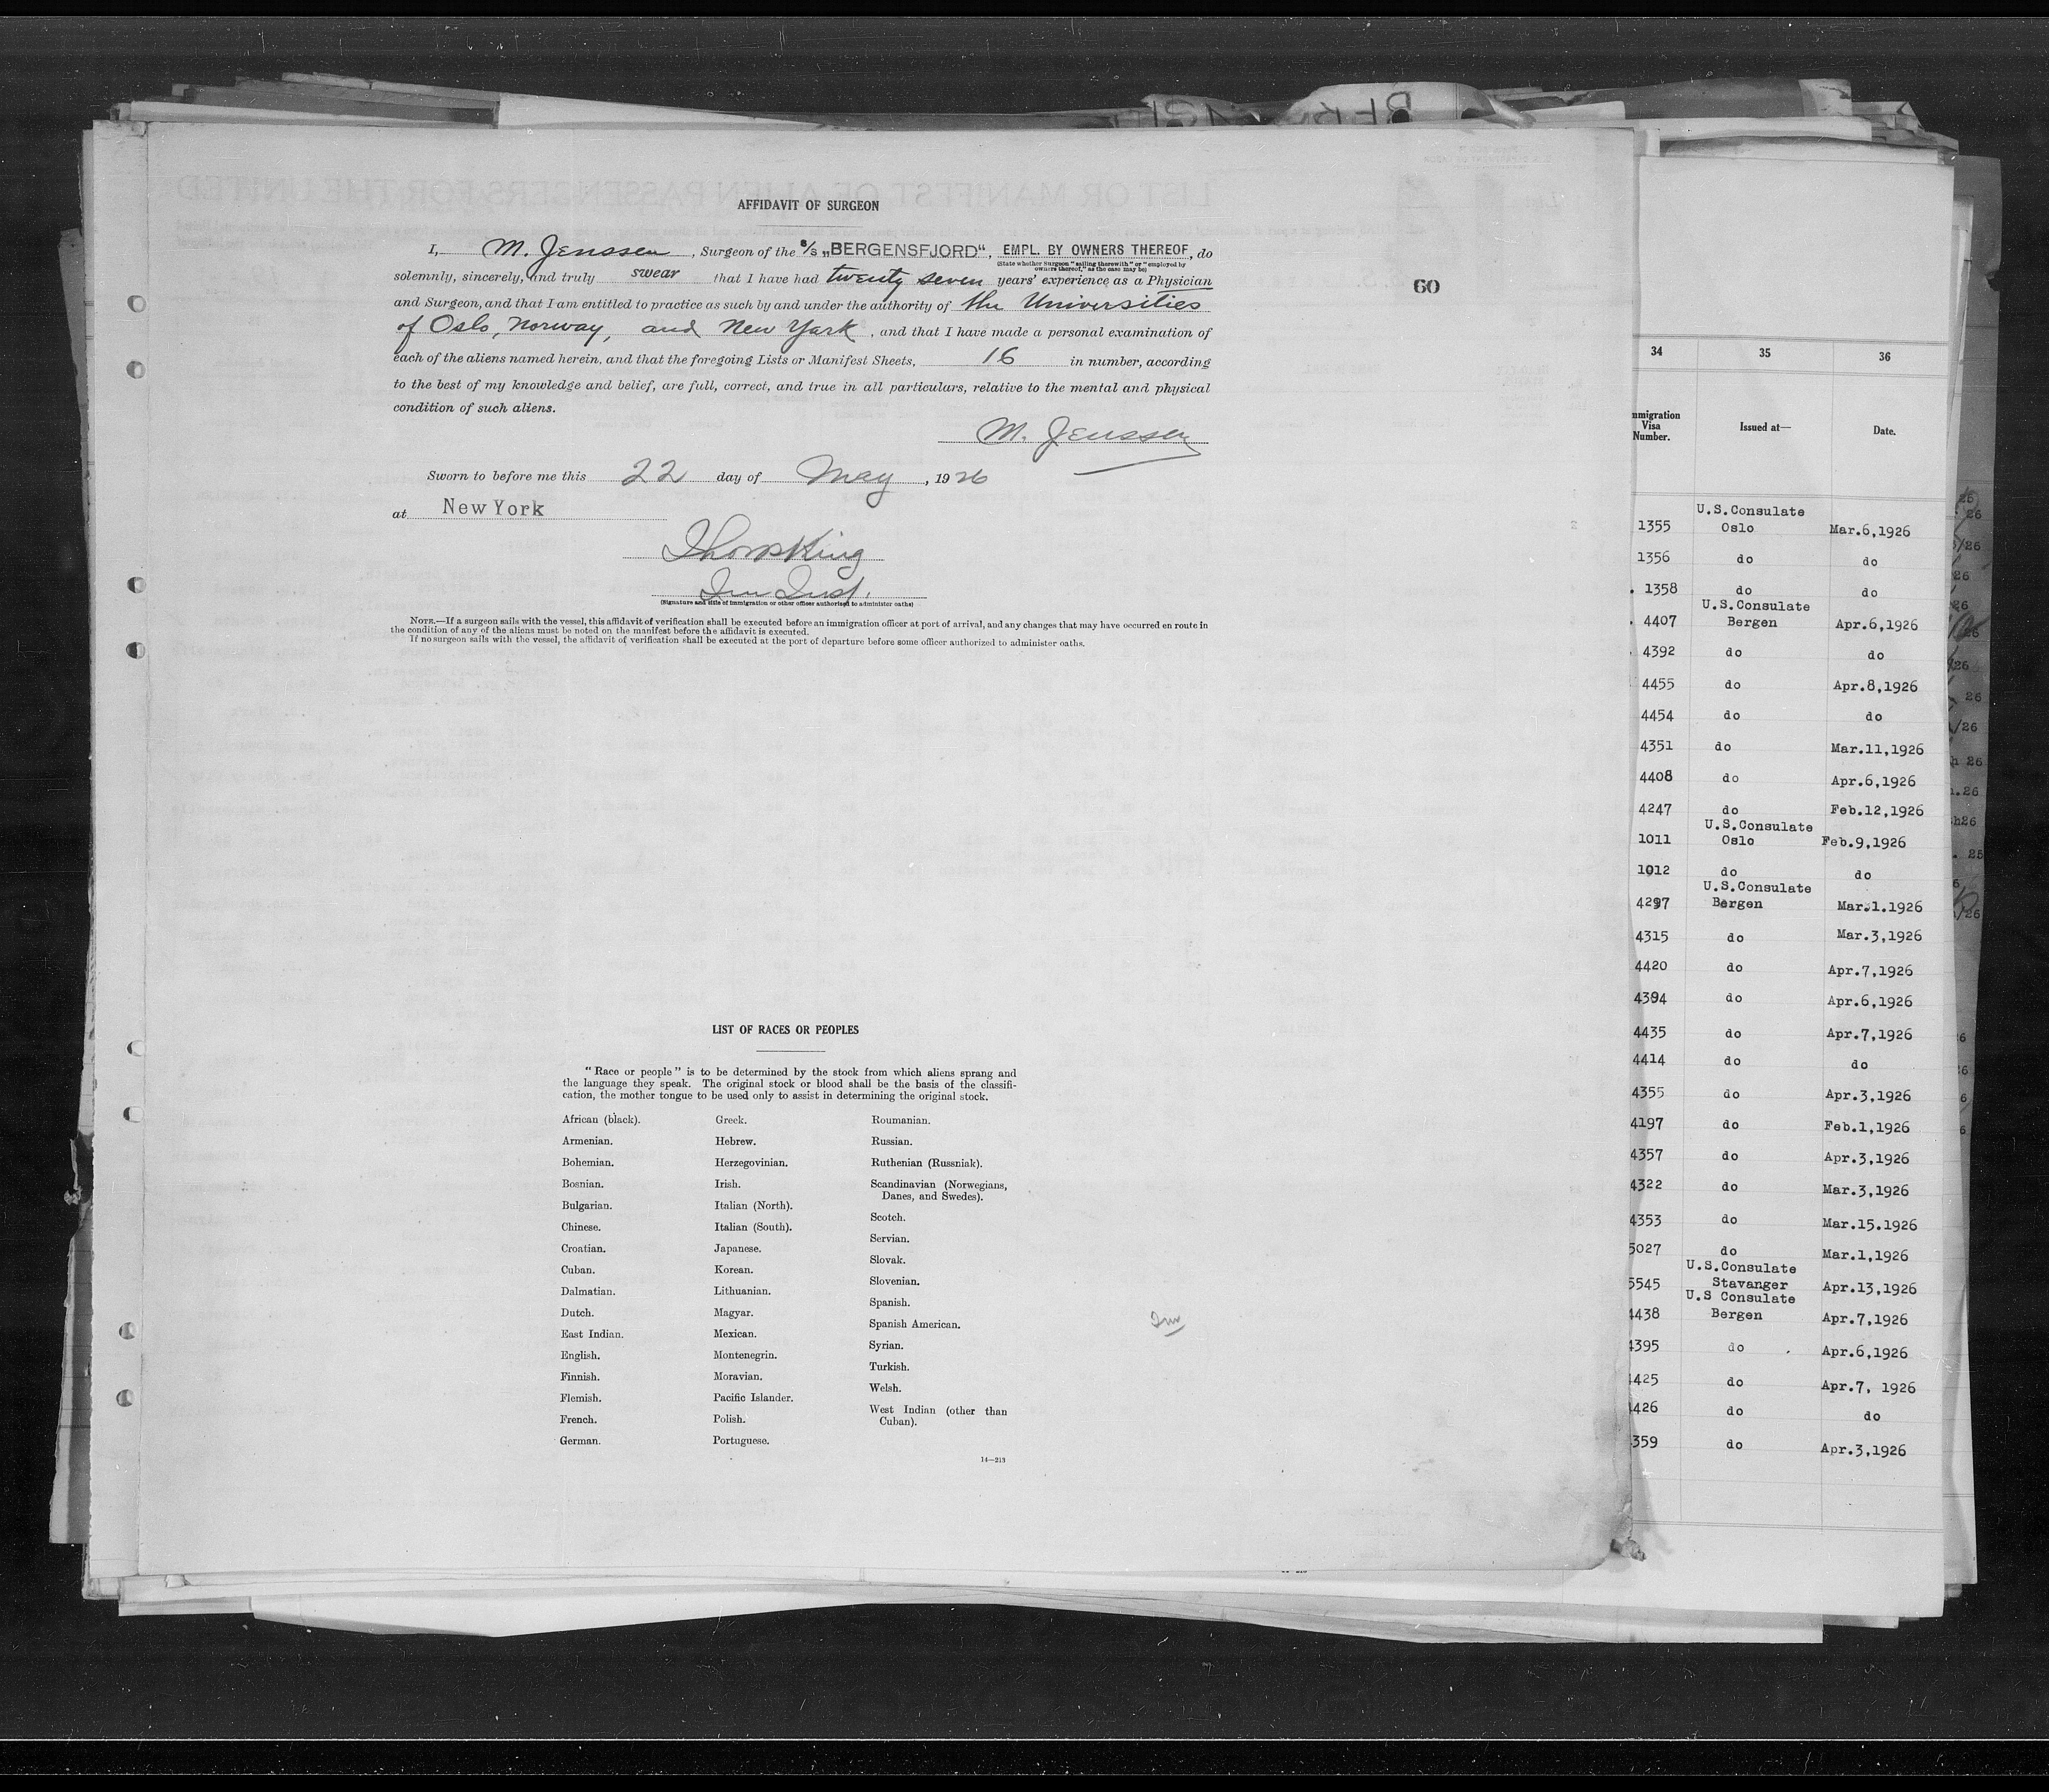 AFFIDAVIT OF SURGEON
I, M. Jenssen, Surgeon of the S/S „BERGENSFJORD“, EMPL. BY OWNERS THEREOF, do
(State whether Surgeon "sailing therewith" or "employed by
owners thereof," as the case may be)
solemnly, sincerely, and truly swear that I have had twenty seven years' experience as a Physician
and Surgeon, and that I am entitled to practice as such by and under the authority of the Universities
of Oslo, Norway, and New York, and that I have made a personal examination of
each of the aliens named herein, and that the foregoing Lists or Manifest Sheets, 16 in number, according
to the best of my knowledge and belief, are full, correct, and true in all particulars, relative to the mental and physical
condition of such aliens.
M. Jenssen
Sworn to before me this 22 day of May, 1926
at New York
Imm Insp.
(Signature and title of immigration or other officer authorized to administer oaths)
NOTE.—If a surgeon sails with the vessel, this affidavit of verification shall be executed before an immigration officer at port of arrival, and any changes that may have occurred en route in
the condition of any of the aliens must be noted on the manifest before the affidavit is executed.
If no surgeon sails with the vessel, the affidavit of verification shall be executed at the port of departure before some officer authorized to administer oaths.
60
LIST OF RACES OR PEOPLES
"Race or people" is to be determined by the stock from which aliens sprang and
the language they speak. The original stock or blood shall be the basis of the classifi-
cation, the mother tongue to be used only to assist in determining the original stock.
African (black).
Armenian.
Bohemian.
Bosnian.
Bulgarian.
Chinese.
Croatian.
Cuban.
Dalmatian.
Dutch.
East Indian.
English.
Finnish.
Flemish.
French.
German.
Greek.
Hebrew.
Herzegovinian.
Irish.
Italian (North).
Italian (South).
Japanese.
Korean.
Lithuanian.
Magyar.
Mexican.
Montenegrin.
Moravian.
Pacific Islander.
Polish.
Portuguese.
Roumanian.
Russian.
Ruthenian (Russniak).
Scandinavian (Norwegians,
Danes, and Swedes).
Scotch.
Servian.
Slovak.
Slovenian.
Spanish.
Spanish American.
Syrian.
Turkish.
Welsh.
West Indian (other than
Cuban).
14—213
34 35 36
mmigration
Visa
Number.
Issued at—
Date.
U.S.Consulate
1355 Oslo Mar.6,1926
1356 do do
1358 do do
U.S.Consulate
4407 Bergen Apr.6,1926
4392 do do
4455 do Apr.8,1926
4454 do do
4351 do Mar.11,1926
4408 do Apr.6,1926
4247 do Feb.12,1926
U.S.Consulate
1011 Oslo Feb.9,1926
1012 do do
U.S.Consulate
4297 Bergen Mar.1.1926
4315 do Mar.3,1926
4420 do Apr.7,1926
4394 do Apr.6,1926
4435 do Apr.7,1926
4414 do do
4355 do Apr.3,1926
4197 do Feb.1,1926
4357 do Apr.3,1926
4322 do Mar.3,1926
4353 do Mar.15.1926
5027 do Mar.1,1926
U.S.Consulate
5545 Stavanger Apr.13,1926
U.S Consulate
4438 Bergen Apr.7,1926
4395 do Apr.6,1926
4425 do Apr.7, 1926
426 do do
359 do Apr.3,1926